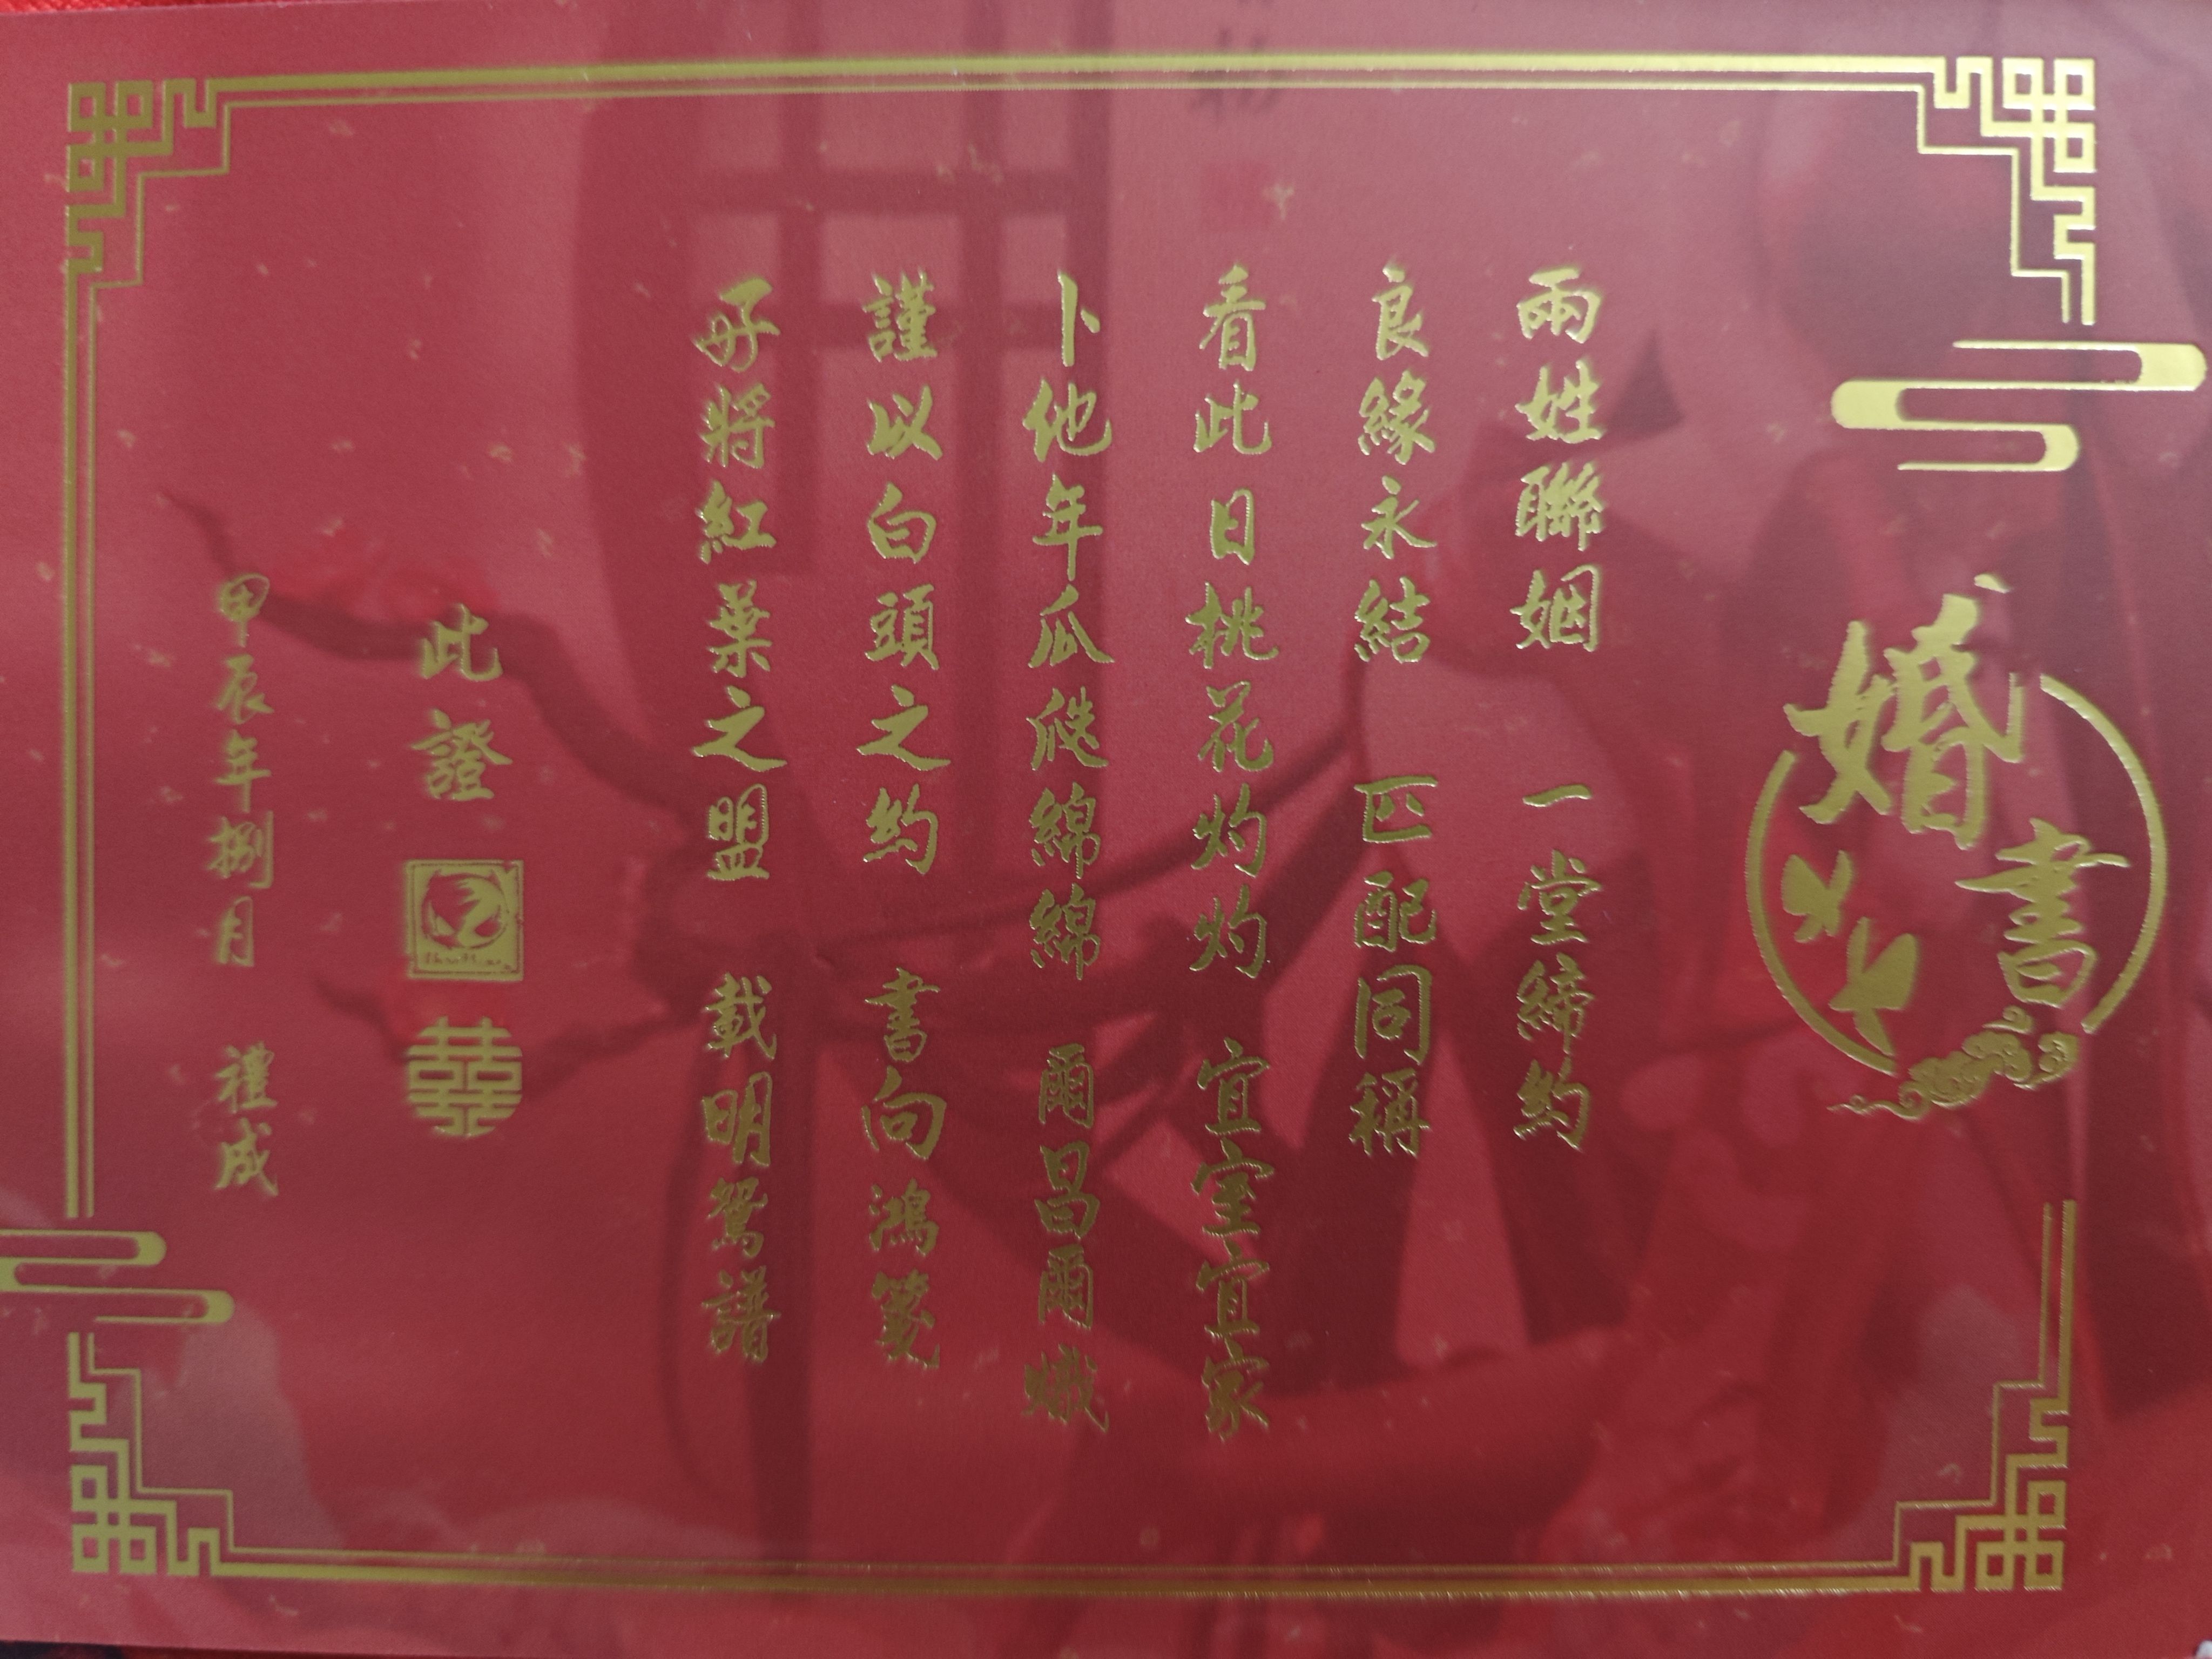 婚書
兩姓聯姻 一堂締約
良緣永結 匹配同稱
看此日桃花灼灼 宜室宜家
卜他年瓜瓞綿綿 爾昌爾熾
謹以白頭之約 書向鴻箋
好將紅葉之盟 載明鴛譜
此證
囍
甲辰年捌月 禮成